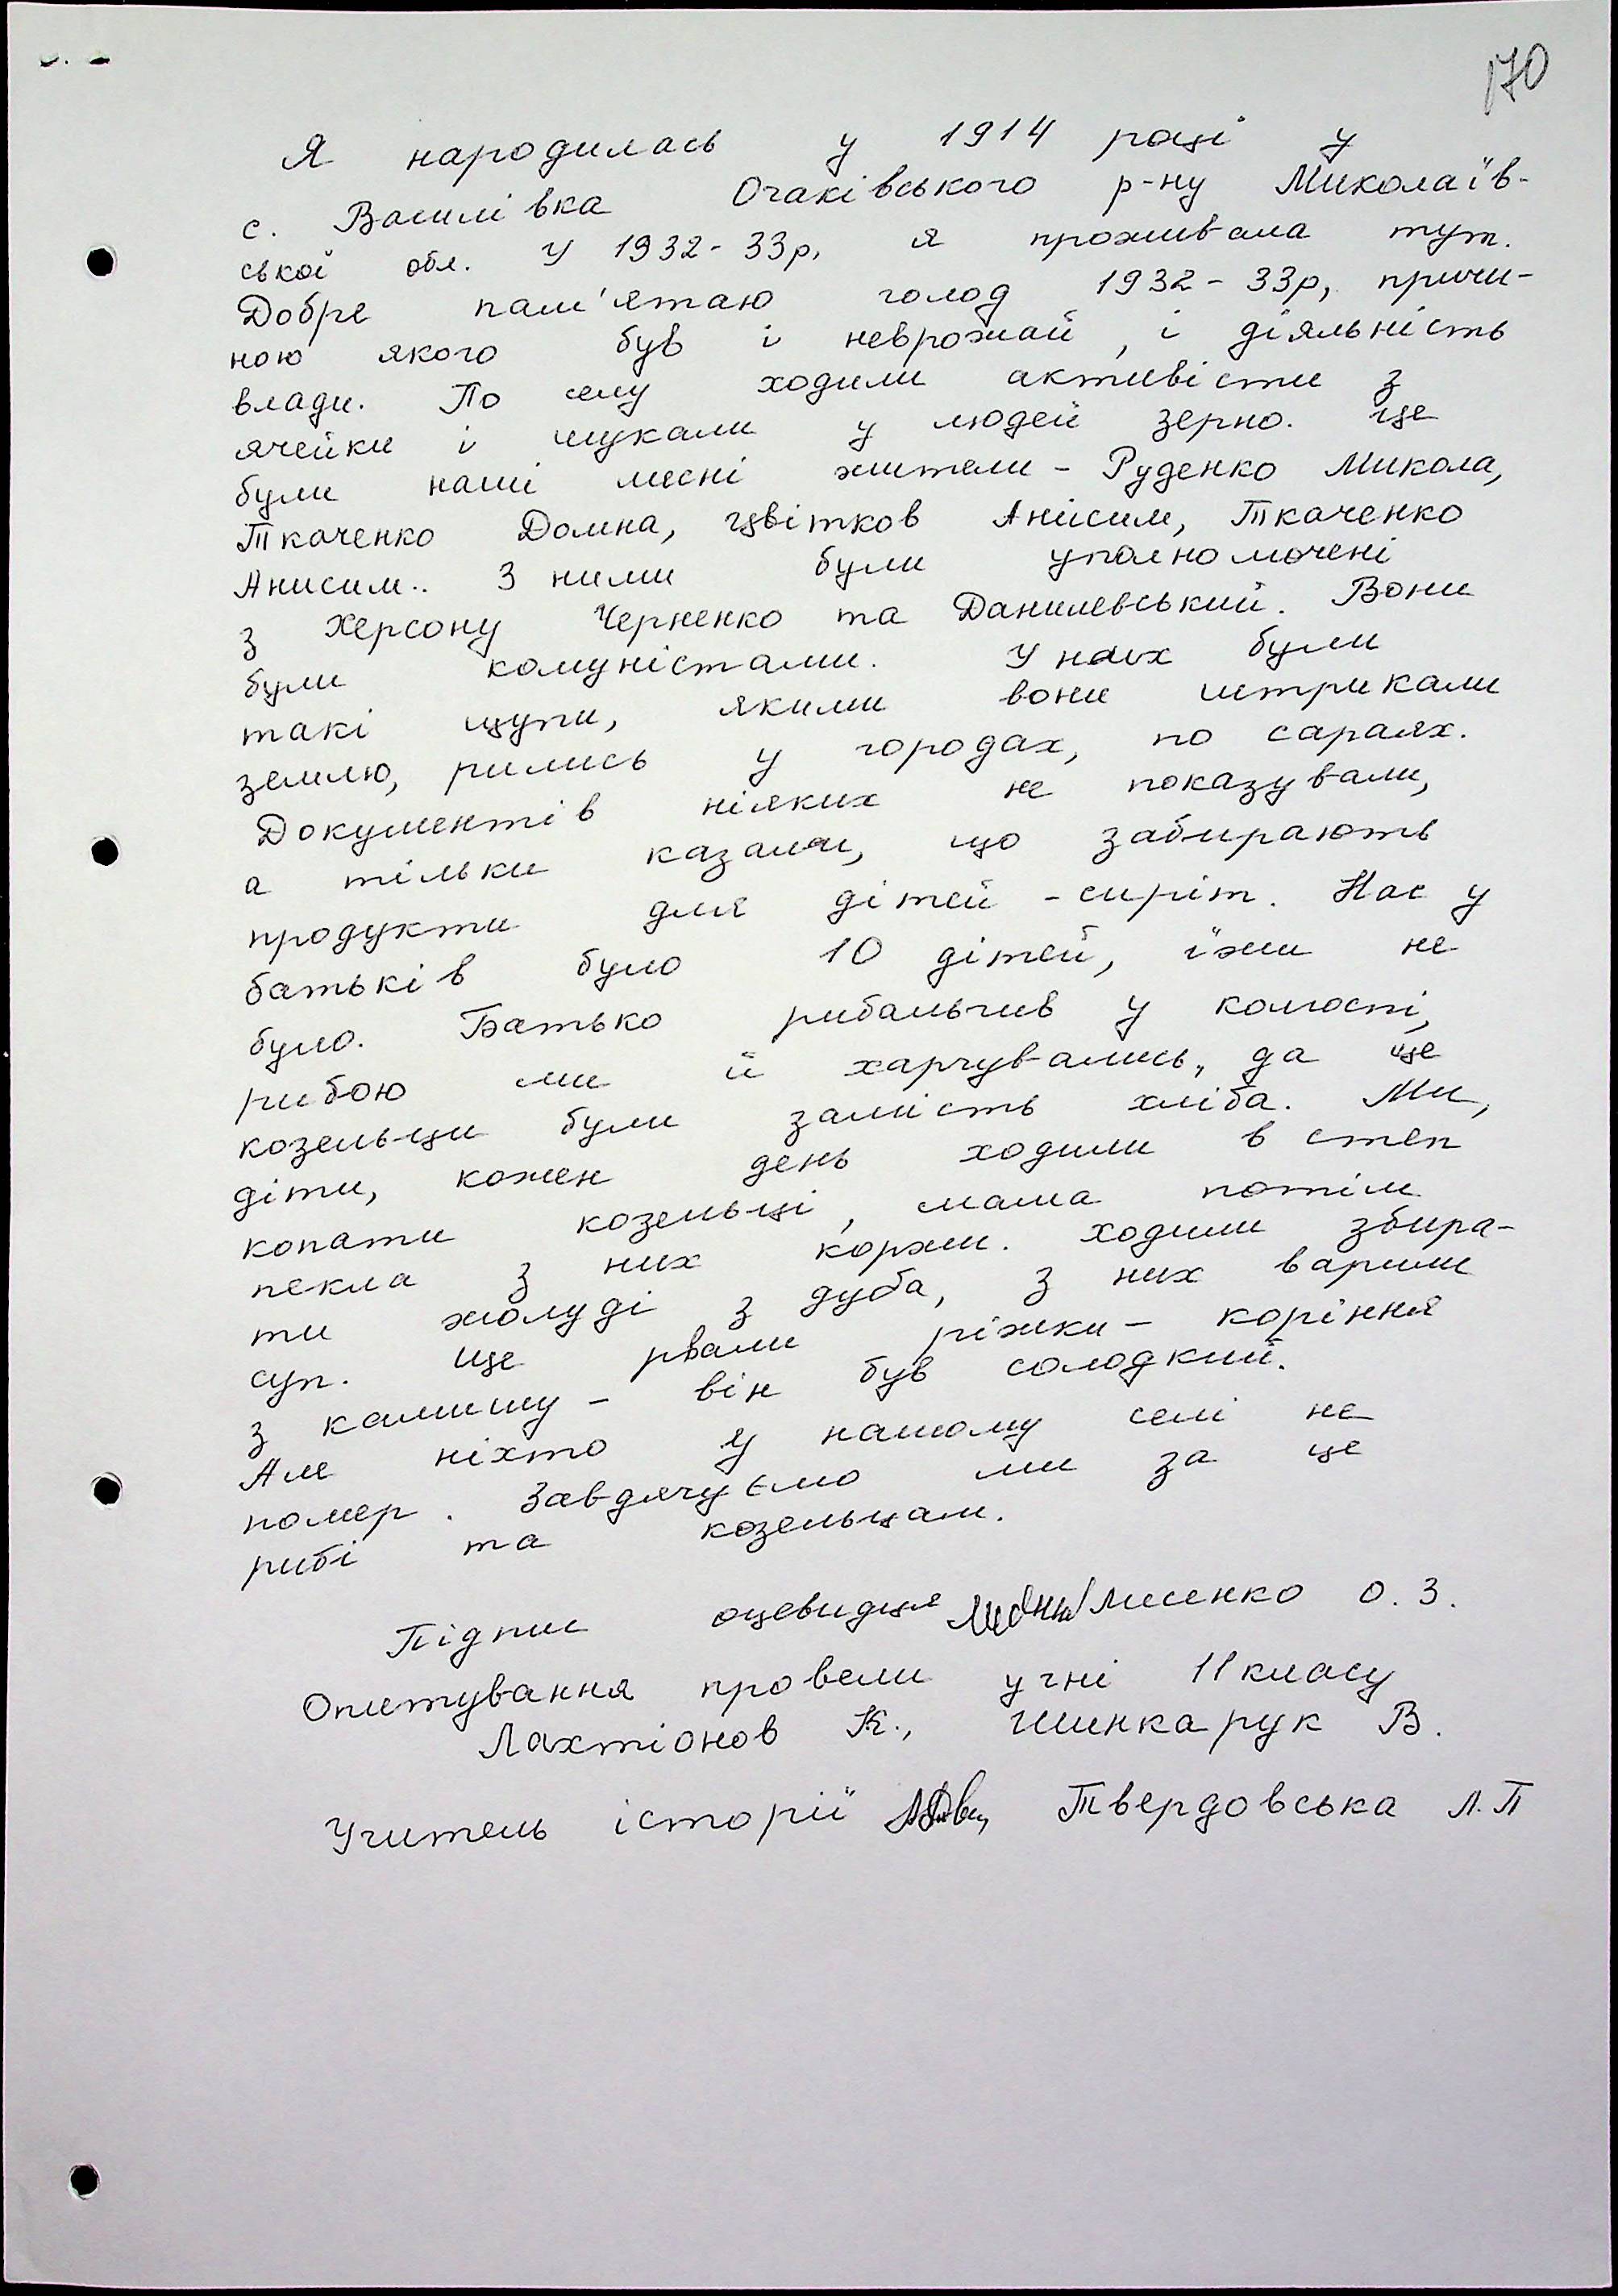 170
Я народилась у 1914 році у
с. Василівка Очаківського р-ну Миколаїв-
ської обл. У 1932-33р, я проживала тут.
Добре пам'ятаю голод 1932-33р, причи-
ною якого був і неврожай, і діяльність
влади. По селу ходили активісти з
ячейки і шукали у людей зерно. Це
були наші месні жителі - Руденко Микола,
Ткаченко Домна, Цвітков Анисим, Ткаченко
Анисим.. З ними були уполномочені
з Херсону Черненко та Данилевський. Вони
були комуністами. У них були
такі щупи, якими вони штрикали
землю, рились у городах, по сараях.
Документів ніяких не показували,
а тільки казали, що забирають
продукти для дітей-сиріт. Нас у
батьків було 10 дітей, їжи не
було. Батько рибальчив у колгоспі,
рибою ми й харчувались, да ще
козельци були замість хліба. Ми,
діти, кожен день ходили в степ
копати козельці, мама потім
пекла з них коржи. Ходили збира-
ти жолуді з дуба, з них варили
суп. Ще рвали ріжки - коріння
з камишу - він був солодкий.
Але ніхто у нашому селі не
помер. Завдячуємо ми за це
рибі та козельцам.
Підпис очевидця Лисенко О.З.
Опитування провели учні 11 класу
Лахтіонов К., Шинкарук В.
Учитель історії Твердовська Л.П